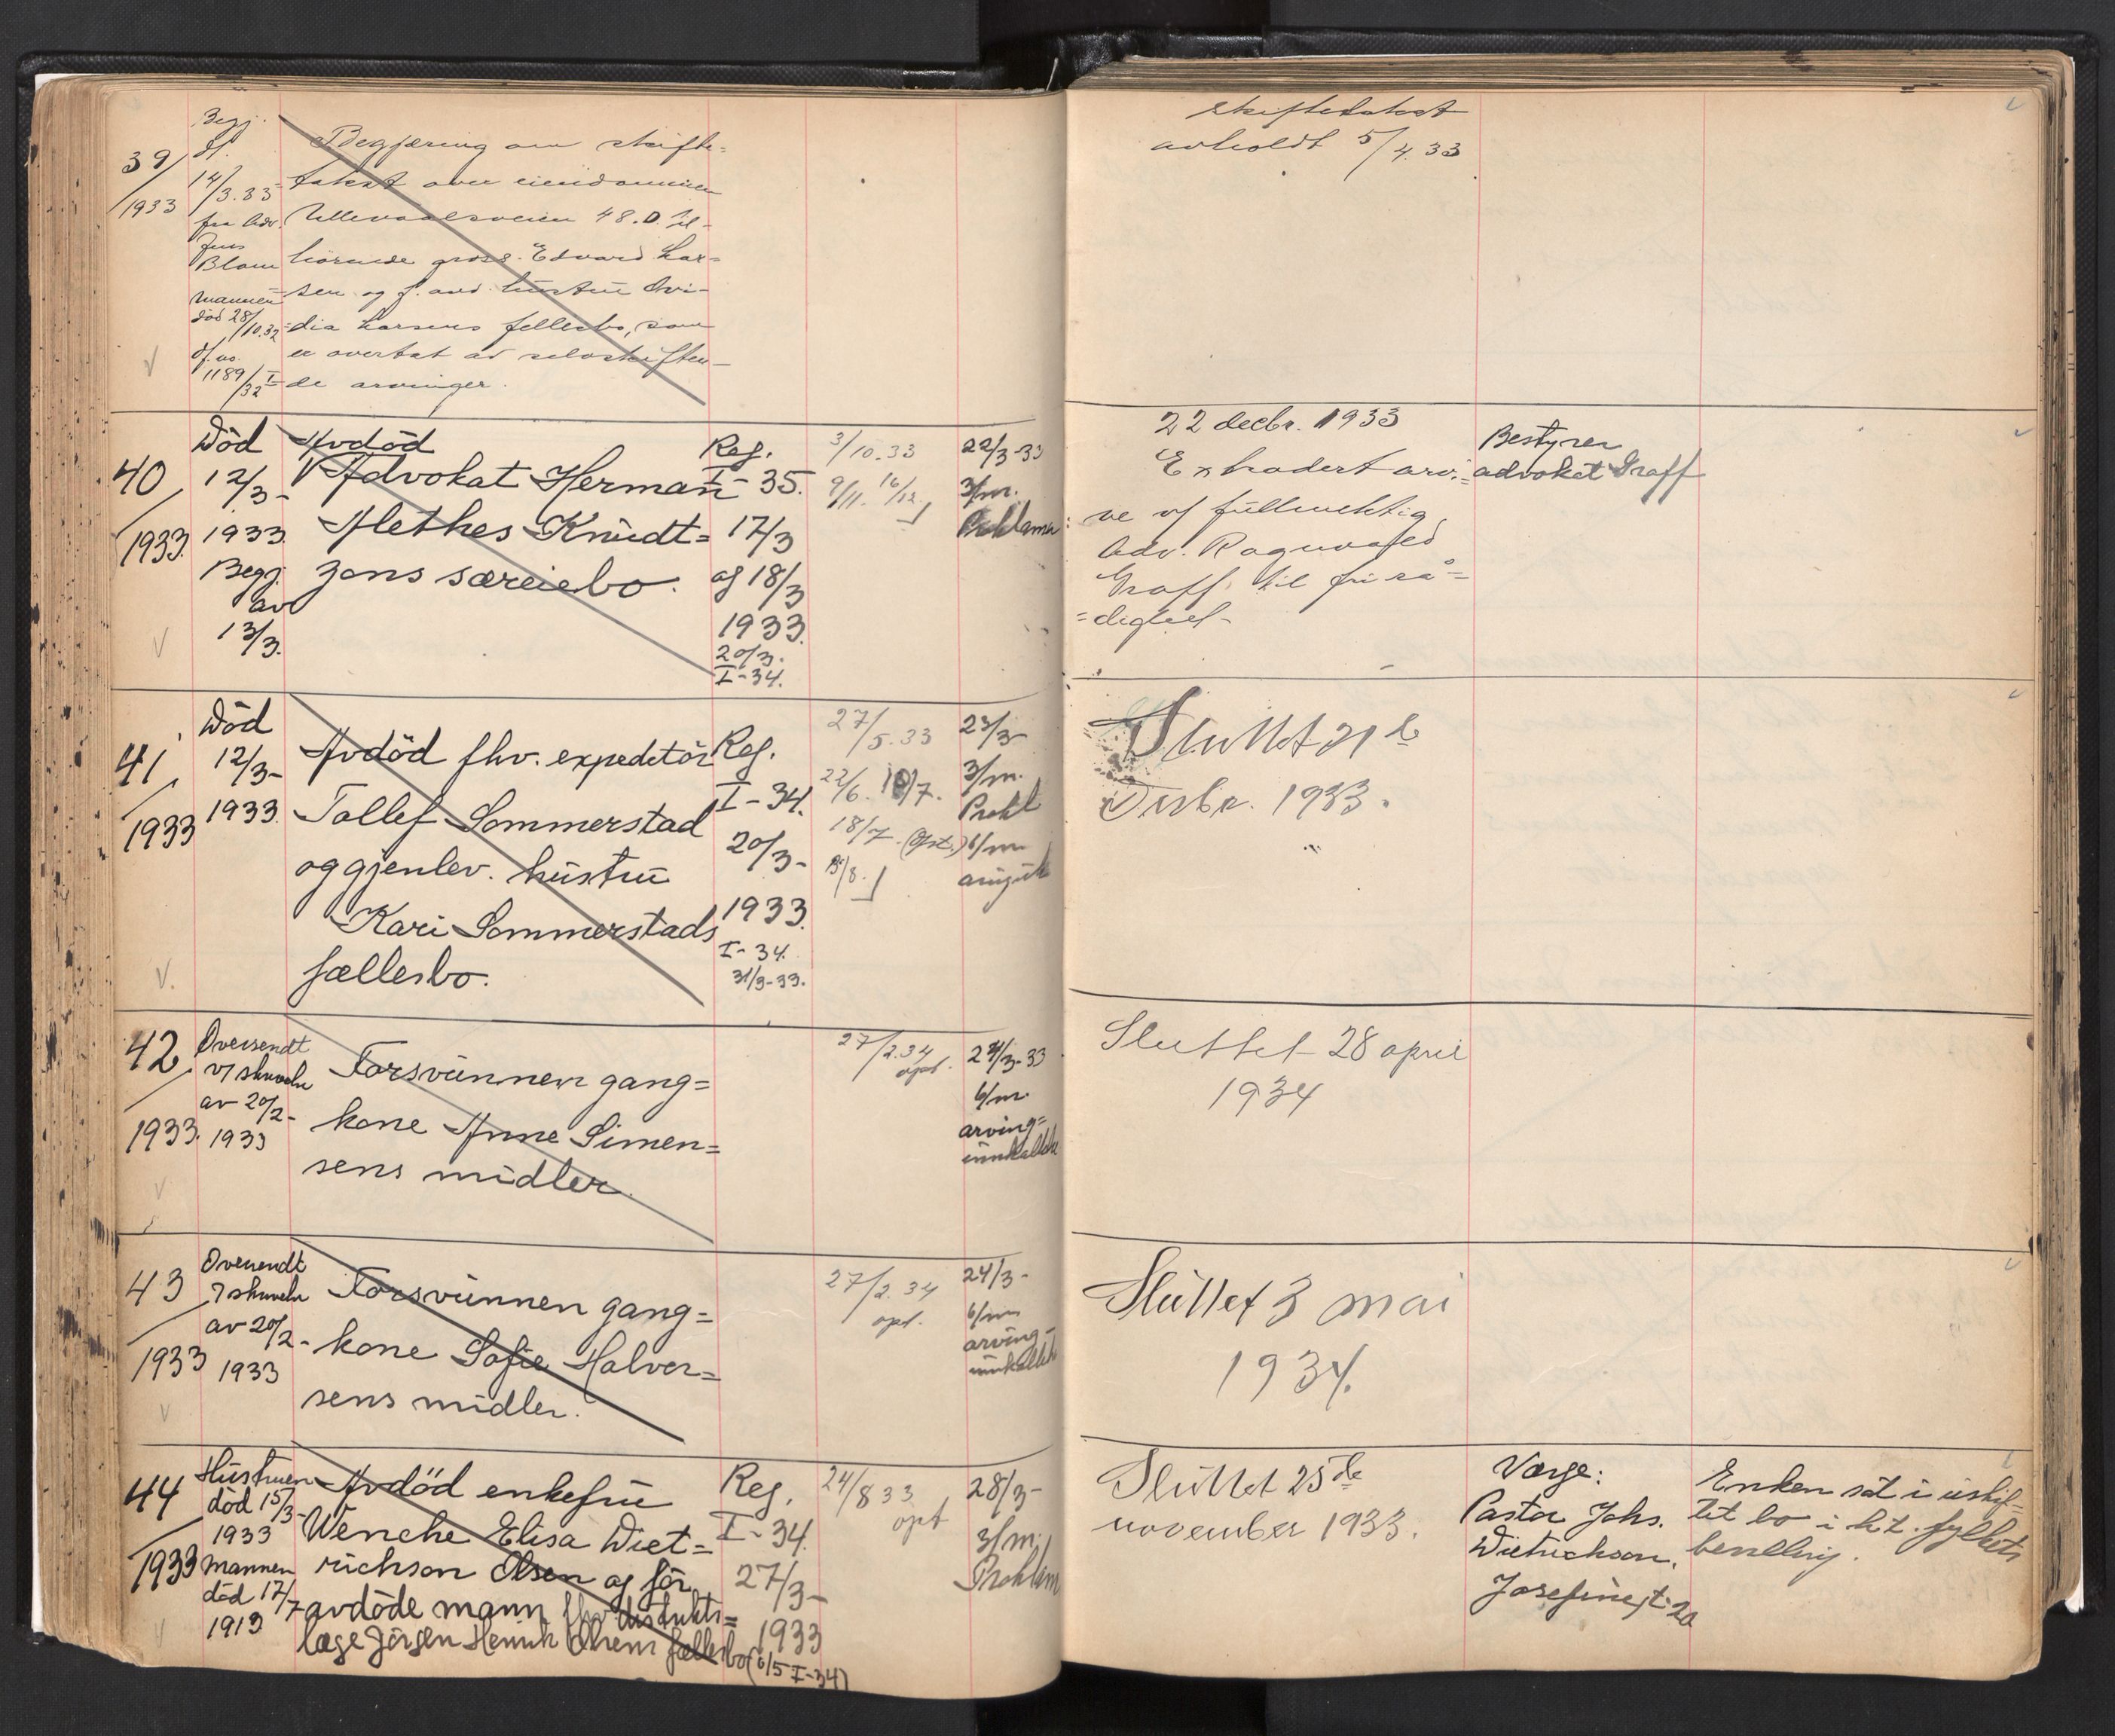 39/1933
Begj.
df.
14/3.33
fra Adv.
Jens
Blom
mannen
død 28/10.32
df. no.
1189/32 I
Begjæring om skifte=
takst over eiendommen
Ullevaalsveien 48.D til-
hörende gross. Edvard Lar=
sen og f. avd. hustru Ovi-
dia Larsens fellesbo, som
er overtat av selvskiften-
de arvinger.
skiftetakst
avholdt 5/4.33
40/1933.
Död
12/3-
1933.
Begj.
av
13/3.
Avdöd
Advokat Herman
Alethes Knudt=
zons særeiebo.
Reg.
I-35.
17/3
og 18/3
1933.
20/3.
I-34.
3/10.33
9/11. 16/12.
22/3-33
3/m.
Proklama
22 decbr. 1933
Extradert arv.=
ve v/ fullmektig
Adv. Ragnvald
Graff, til fri rå=
=dighet-
Bestyrer
advokat Graff
41/1933
Död
12/3-
1933.
Avdöd fhv. expeditör
Tollef Sommerstad
og gjenlev. hustru
Kari Sommerstads
fællesbo.
Reg.
I-34.
20/3-
1933.
I-34.
31/3-33.
27/5.33
22/6. 10/7.
18/7
15/8.
23/3-
3/m.
Prokl
6/m
Sluttet 21de
Desbr. 1933.
42/1933.
Oversendt
v/ skrivelse
av 20/2-
1933
Forsvunnen gang=
kone Anne Simen=
sens midler.
27/2.34
opt.
24/3-33
6/m.
arving=
innkallelse
Sluttet 28 april
1934
43/1933
Oversendt
v/ skrivelse
av 20/2-
1933
Forsvunnen gang=
kone Sofie Halver=
sens midler.
27/2.34
opt.
24/3-
6/m
arving-
innkallelse
Sluttet 3 mai
1934.
44/1933
Hustruen
död 15/3-
1933
Mannen
död 17/7
1913
Avdöd enkefru
Wenche Elisa Diet=
richson Olsen og för
avdöde mann fhv distrikts=
læge Jörgen Henrik Olsens fællesbo
Reg.
I-34.
27/3-
1933
(6/5 I-34)
24/8 33
opt
28/3-
3/m.
Proklam
Sluttet 25de
november 1933.
Verge:
Pastor Johs.
Dietrichson,
Josefinegt. 20
Enken sat i uskif=
tet bo i h.t. fylkets
bevilling.